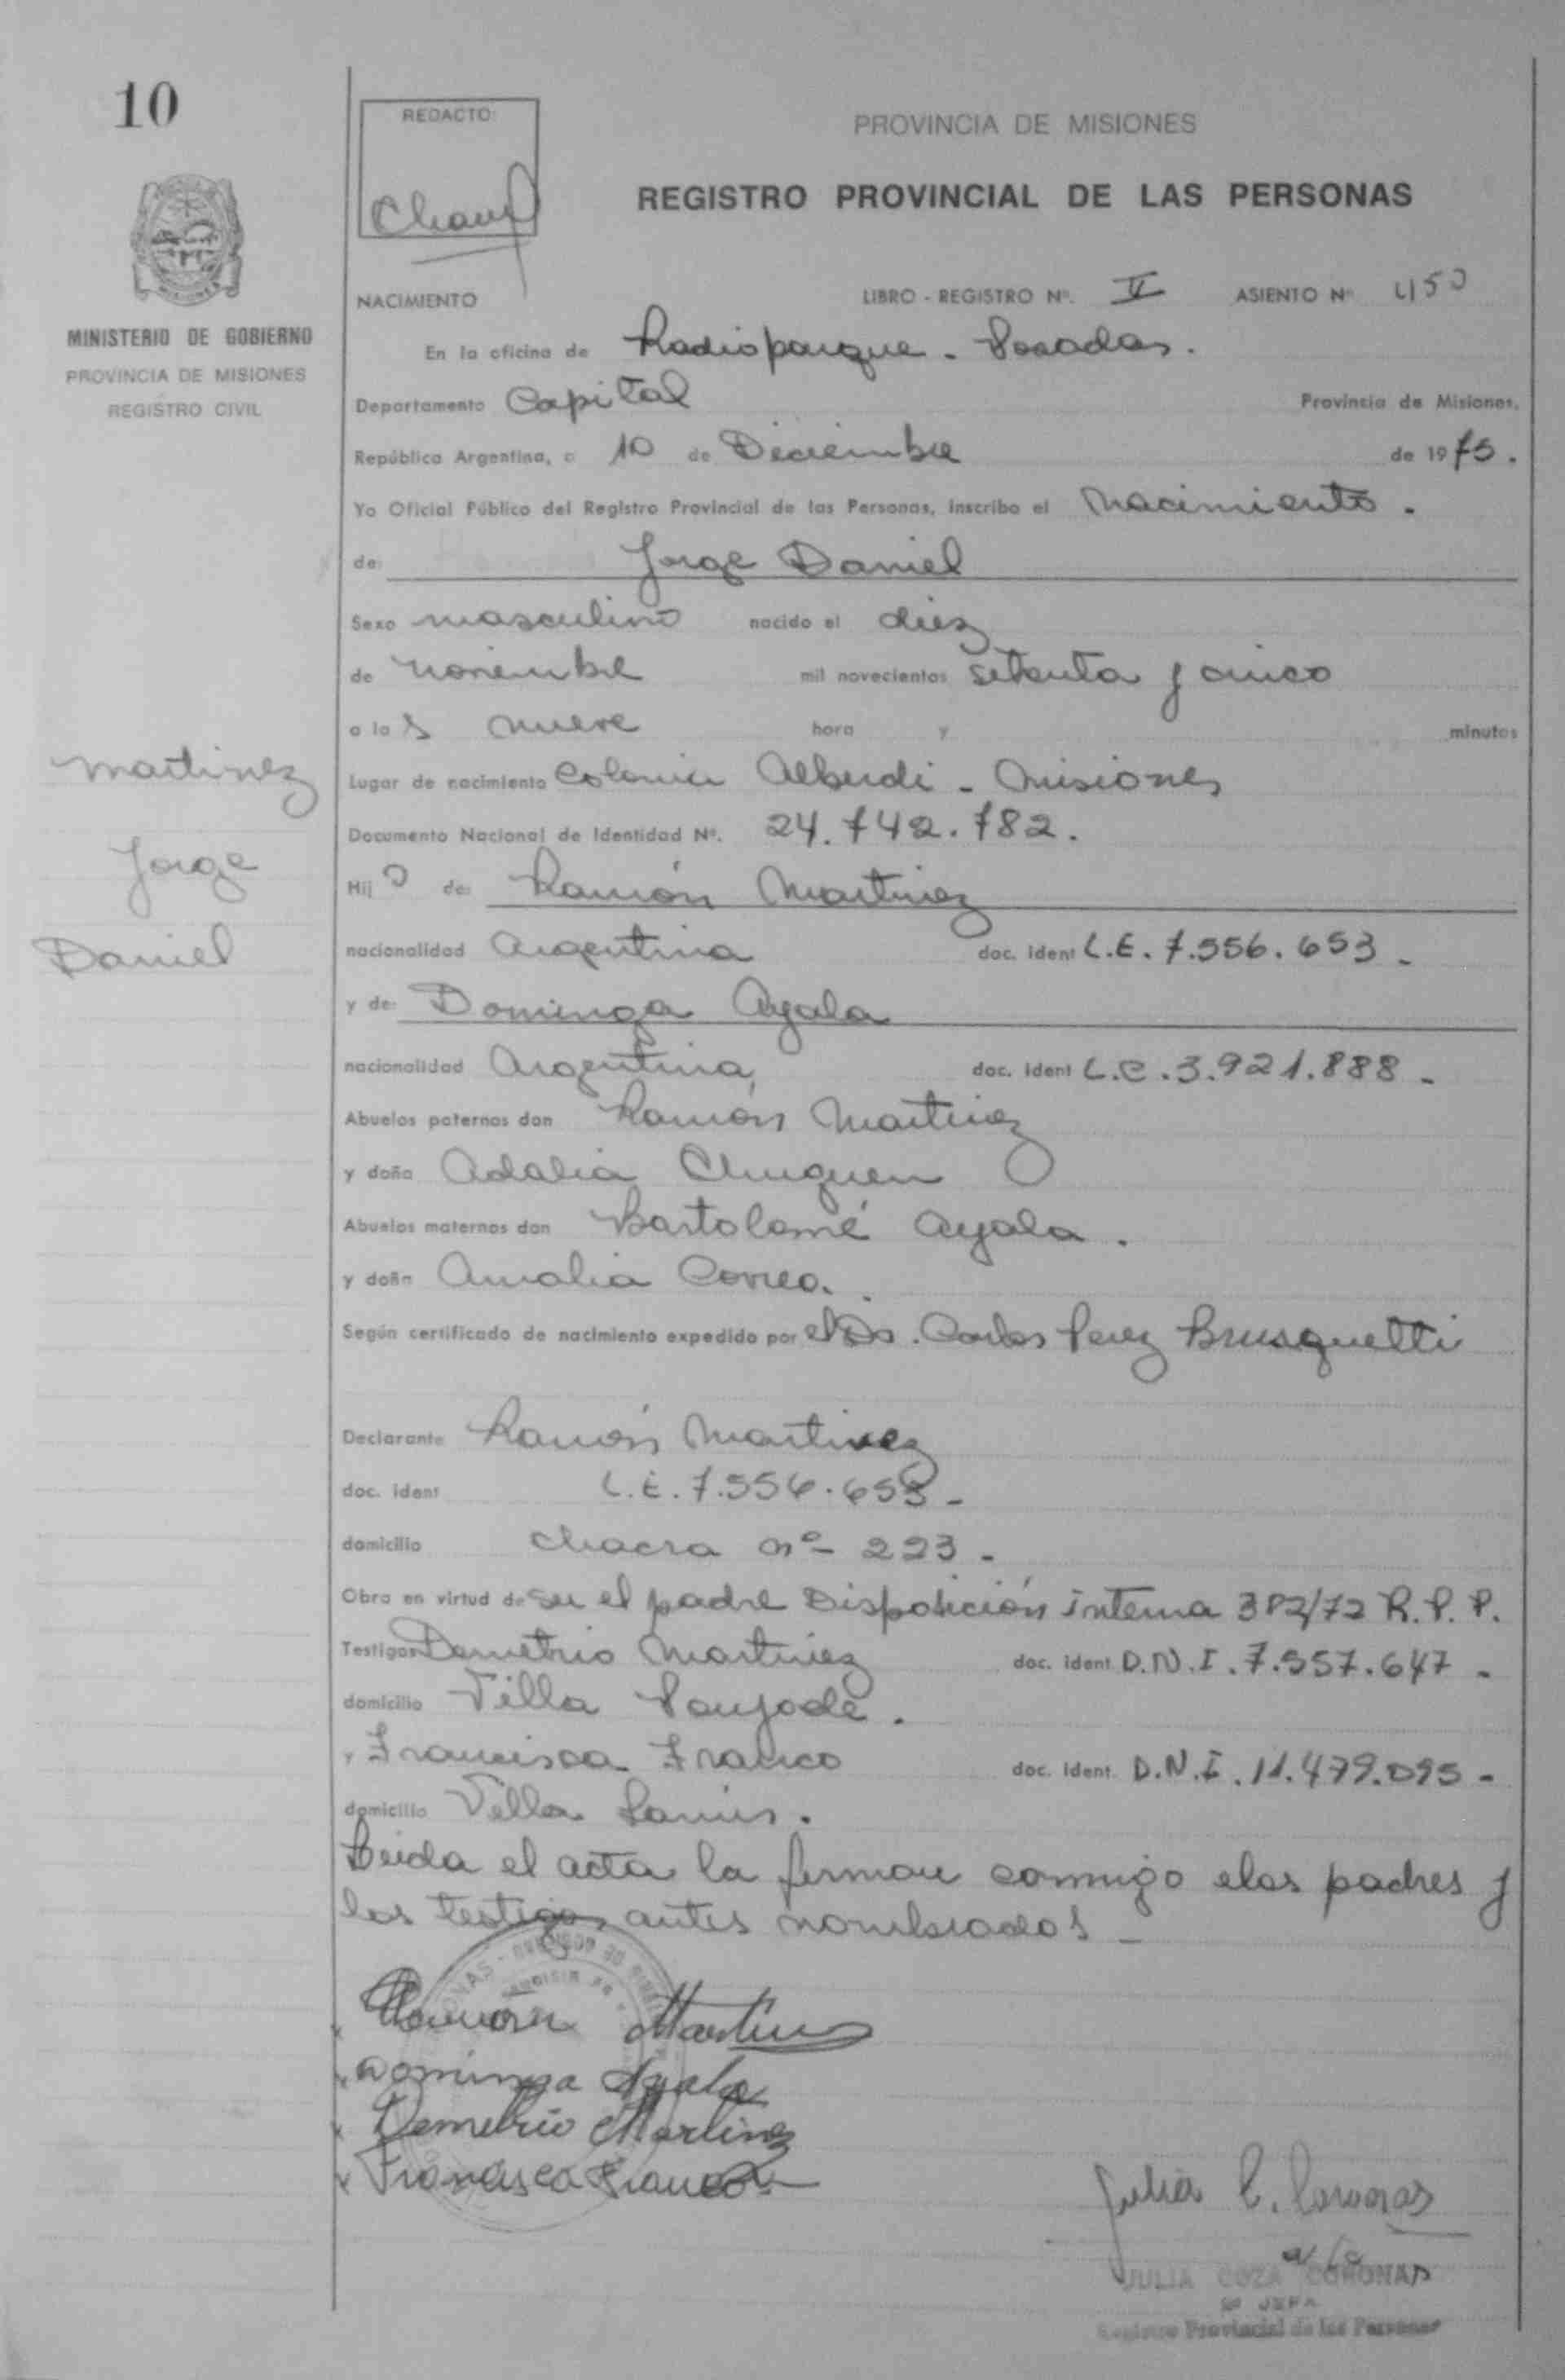 10
REDACTO:
PROVINCIA DE MISIONES
REGISTRO PROVINCIAL DE LAS PERSONAS
MINISTERIO DE GOBIERNO
PROVINCIA DE MISIONES
REGISTRO CIVIL
NACIMIENTO LIBRO - REGISTRO Nº. II ASIENTO Nº 450
En la oficina de Radioparque - Posadas.
Departamento Capital Provincia de Misiones,
República Argentina, a 10 de Diciembre de 1975.
Yo Oficial Público del Registro Provincial de las Personas, inscribo el Nacimiento.
de: Jorge Daniel
Sexo masculino nacido el diez
de noviembre mil novecientos setenta y cinco
a las nueve hora y minutos
Martinez
Jorge
Daniel
Lugar de nacimiento Colonia Alberdi - Misiones
Documento Nacional de Identidad Nº. 24.742.782.
Hijo de: Ramón Martinez
nacionalidad Argentina doc. ident L.E. 7.556.653 -
y de: Dominga Ayala
nacionalidad Argentina, doc. ident L.C. 3.921.888 -
Abuelos paternos don Ramón Martinez
y doña Adalia
Abuelos maternos don Bartolomé Ayala.
y doña Amalia Correa.
Según certificado de nacimiento expedido por el Dr. Carlos Perez Brusquetti
Declarante Ramón Martinez
doc. ident L.E. 7.556.653 -
domicilio chacra nº 223 -
Obra en virtud de ser el padre Disposición interna 382/72 R.P.P.
Testigos Demetrio Martinez doc. ident D.N.I. 7.557.647 -
domicilio Villa
y Francisca Franco doc. ident. D.N.I. 11.479.095 -
domicilio Villa
Leida el acta la firman conmigo los padres y
los testigos antes nombrados -
Ramón Martinez
Dominga Ayala
Demetrio Martinez
Francisca Franco
Julia C. Coronas
JULIA COZA CORONAS
JEFA
Registro Provincial de las Personas